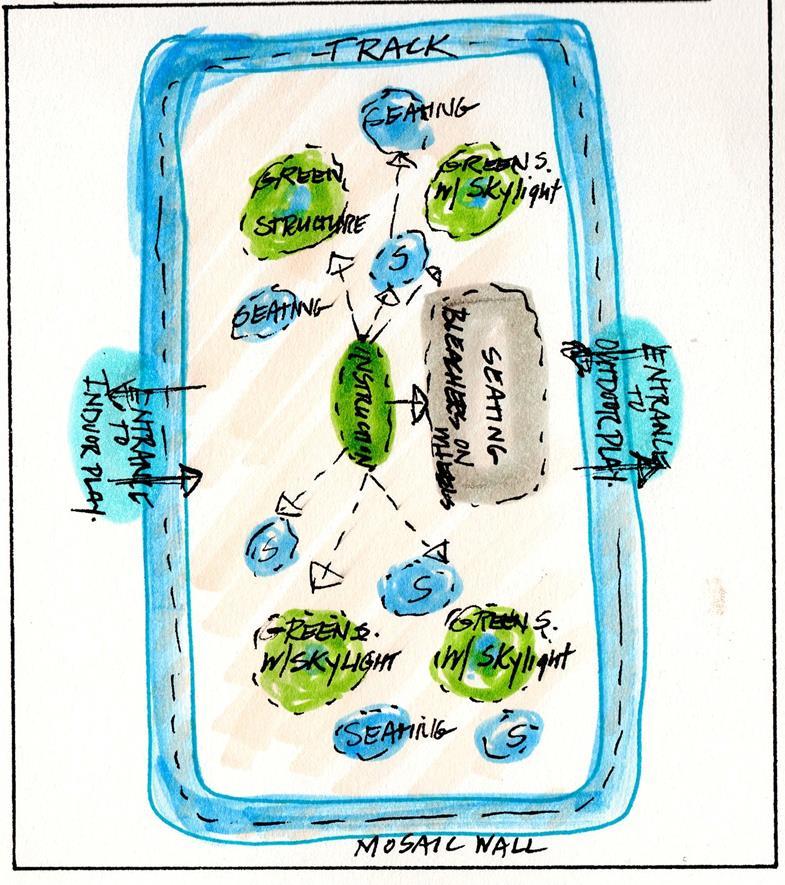 TRACK
SEATING
GREEN
STRUCTURE
GREEN S.
W/ Skylight
S
SEATING
INSTRUCTION
SEATING
BLEACHERS ON
WHEELS
ENTRANCE
TO
INDOOR PLAY.
ENTRANCE
TO
OUTDOOR PLAY.
S
S
GREEN S.
W/SKYLIGHT
GREEN S.
W/ Skylight
SEATING
S
MOSAIC WALL